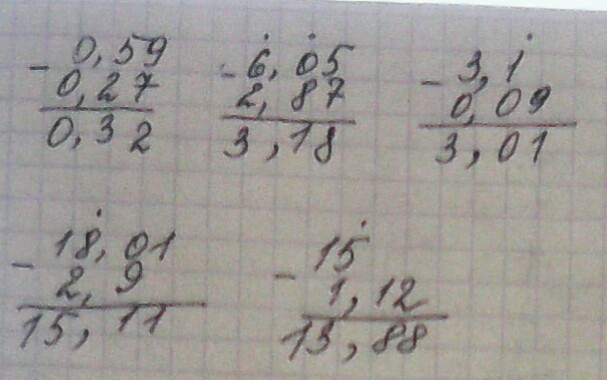 - 0,59 - 6,05 - 3,1
0,27 2,87 0,09
0,32 3,18 3,01
- 18,01 - 15
2,9 1,12
15,11 13,88